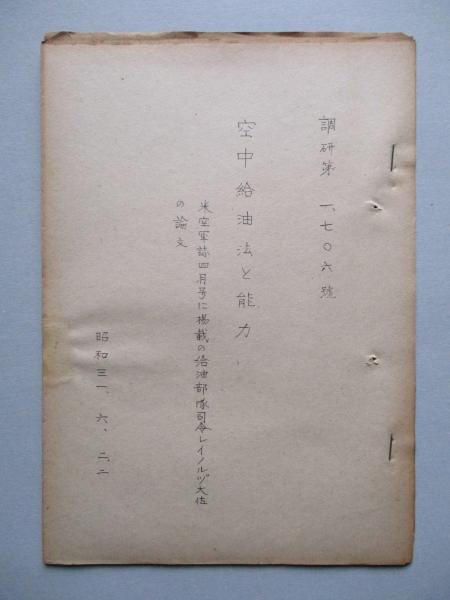 調研第一、七〇六號
空中給油法と能力
米空軍誌四月号に掲載の給油部隊司令レイノルヅ大佐
の論文
昭和三一、六、二二